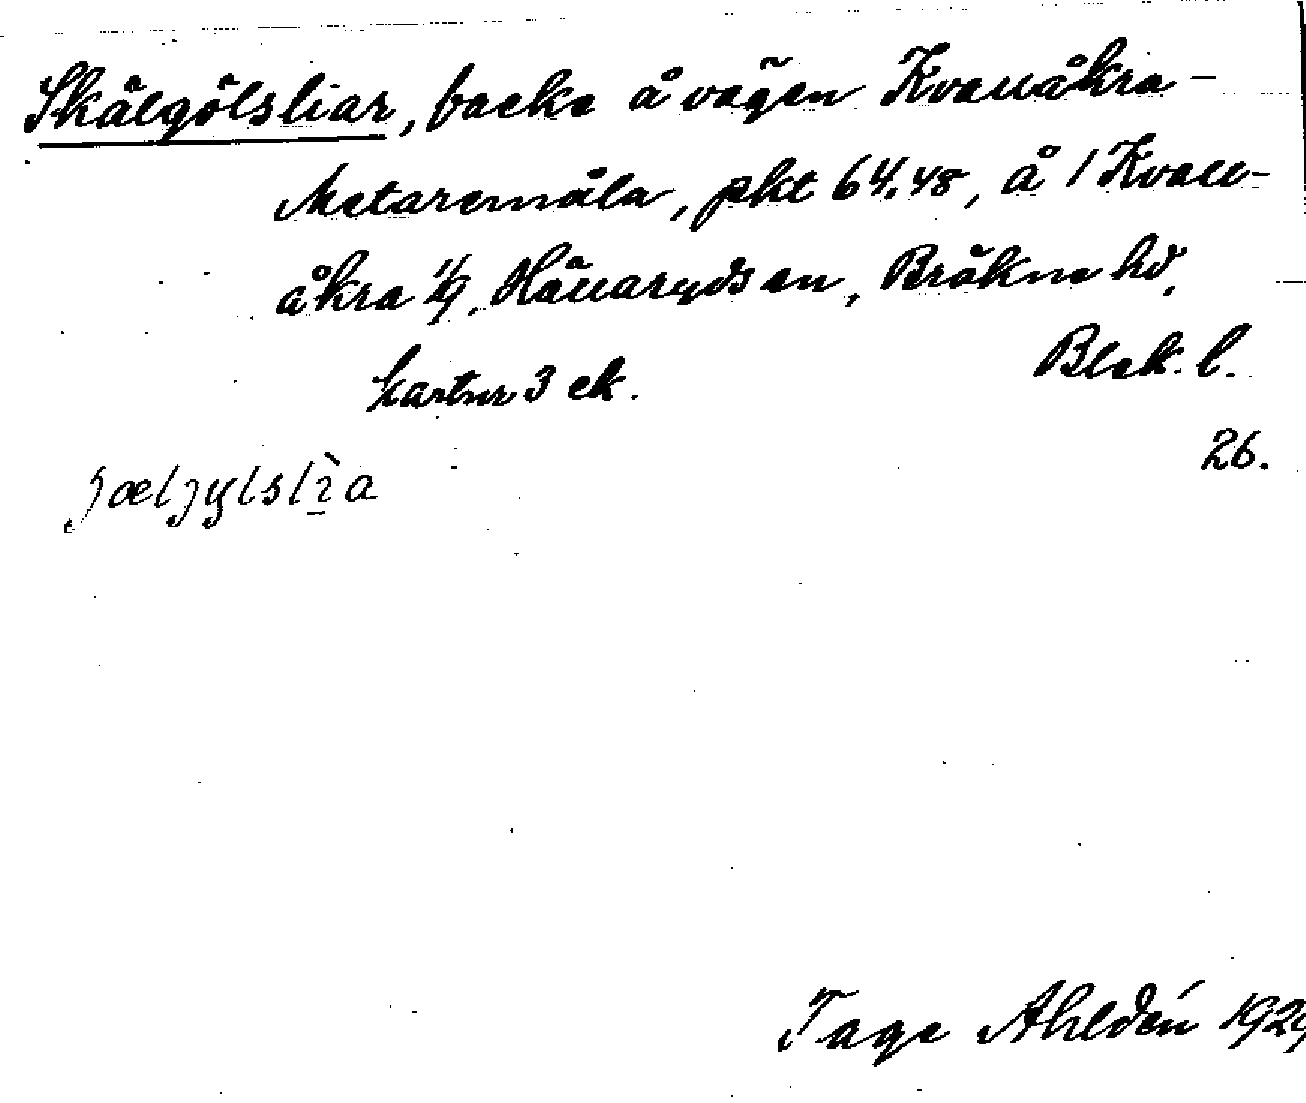 Skälgölsliar, backe å vägen Kvallåkra -
Metaremåla, pkt 64.48, å 1 Kvall-
åkra 1/9, Hällaryds sn, Bräkne hd,
kartur 3 ek. Blek. l.
26.
Tage Ahldén 1929